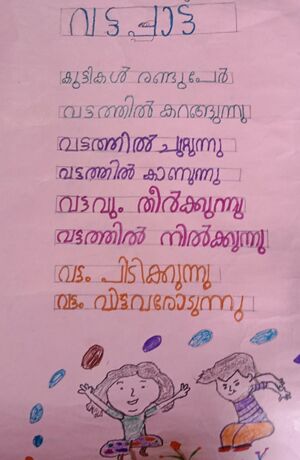 വട്ടപ്പാട്ട്
കുട്ടികൾ രണ്ടുപേർ
വട്ടത്തിൽ കറങ്ങുന്നു
വട്ടത്തിൽ ചുറ്റുന്നു
വട്ടത്തിൽ കാണുന്നു
വട്ടവും തീർക്കുന്നു
വട്ടത്തിൽ നിൽക്കുന്നു
വട്ടം പിടിക്കുന്നു
വട്ടം വിട്ടവരോടുന്നു